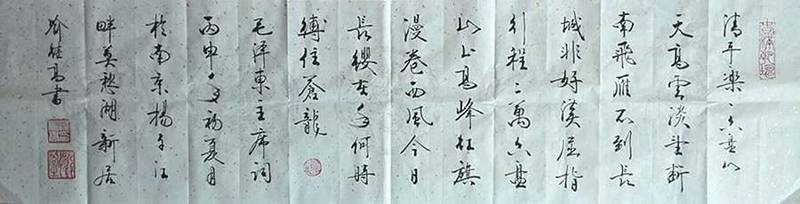 清平乐·六盘山
天高云淡望断
南飞雁不到长
城非好汉屈指
行程二万六盘
山上高峰红旗
漫卷西风今日
長缨在手何时
缚住苍龙
毛泽东主席词
丙申年初夏月
于南京扬子江
畔莫愁湖新居
高书